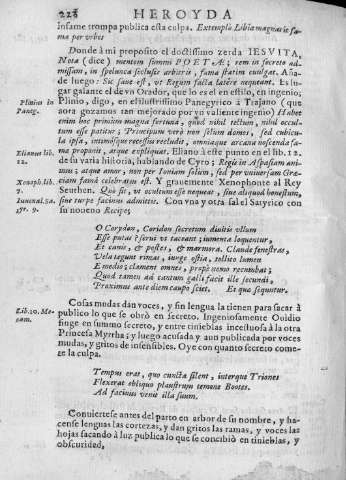 228 HEROYDA
infame trompa publica esta culpa. Extemplò Libiæ magnas it fa-
ma per vrbes
Donde à mi proposito el doctissimo zerda IESVITA,
Nota (dice) mentem summi POETÆ; rem in secreto ad-
missam, in spelunca seclusis arbitris, fama statim euulgat. Aña-
de luego: Sic sanè est, vt Regum facta latêre nequeant. Es lu-
gar galante el de vn Orador, que lo es el en estilo, en ingenio;
Plinius in Paneg.
Plinio, digo, en el ilustrissimo Panegyrico à Trajano (que
aora gozamos tan mejorado por vn valiente ingenio) Habet
enim hoc primùm magna fortuna, quod nihil tectum, nihil occul-
tum esse patitur; Principum verò non solum domos, sed cubicu-
la ipsa, intimosque recessus recludit, omniaque arcana noscenda fa-
Elianus lib. 12.
ma proponit, atque explicat. Eliano à este punto en el lib. 12.
de su varia historia, hablando de Cyro; Regis in Aspasiam ani-
mus; atque amor, non per Ioniam solum, sed per vniuersam Græ-
Xenoph. lib. 9.
ciam fama celebratum est. Y grauemente Xenophonte al Rey
Seuthen. Quò fit, vt occultum esse nequeat; siue aliquid honestum,
Iuuenal. Sa. 9.
siue turpe facinus admittis. Con vna y otra sal el Satyrico con
su noueno Recipe;
O Corydon, Coridon secretum diuitis vllum
Esse putas? serui vt taceant; iumenta loquentur,
Et canis, & postes, & marmora. Claude fenestras,
Vela tegunt rimas, iunge ostia, tollito lumen
E medio; clament omnes, propè nemo recumbat;
Quod tamen ad cantum galli facit ille secundi,
Proximus ante diem caupo sciet. Et quæ sequuntur.
Cosas mudas dan voces, y sin lengua la tienen para sacar à
Lib. 10. Me- tam.
publico lo que se obrò en secreto. Ingeniosamente Ouidio
finge en summo secreto, y entre tinieblas incestuosa à la otra
Princesa Myrrha; y luego acusada y aun publicada por voces
mudas, y gritos de insensibles. Oye con quanto secreto come-
ze la culpa.
Tempus erat, quo cuncta silent, interque Triones
Flexerat obliquo plaustrum temone Bootes.
Ad facinus venit illa suum.
Conuiertese antes del parto en arbor de su nombre, y ha-
cense lenguas las cortezas, y dan gritos las ramas, y voces las
hojas sacando à luz publica lo que se concibiò en tinieblas, y
obscuridad,